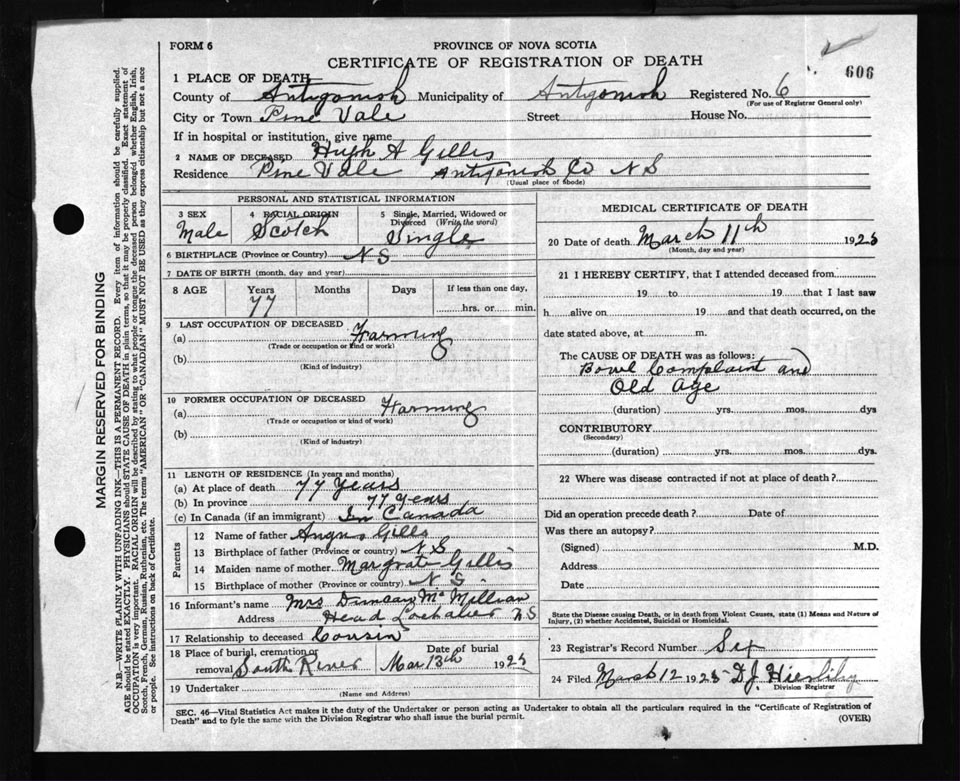 FORM 6
PROVINCE OF NOVA SCOTIA
CERTIFICATE OF REGISTRATION OF DEATH
606
1 PLACE OF DEATH
County of Antigonish Municipality of Antigonish Registered No. 6
(For use of Registrar General only)
City or Town Pine Vale Street House No.
If in hospital or institution, give name
2 NAME OF DECEASED Hugh A Gillis
Residence Pine Vale Antigonish Co N S
(Usual place of abode)
PERSONAL AND STATISTICAL INFORMATION
3 SEX Male
4 RACIAL ORIGIN Scotch
5 Single, Married, Widowed or Divorced (Write the word) Single
6 BIRTHPLACE (Province or Country) N S
7 DATE OF BIRTH (month, day and year)
8 AGE Years 77 Months Days If less than one day, hrs. or min.
9 LAST OCCUPATION OF DECEASED
(a) Farming
(Trade or occupation or kind or work)
(b)
(Kind of industry)
10 FORMER OCCUPATION OF DECEASED
(a) Farming
(Trade or occupation or kind of work)
(b)
(Kind of industry)
11 LENGTH OF RESIDENCE (In years and months)
(a) At place of death 77 Years
(b) In province 77 Years
(c) In Canada (if an immigrant) In Canada
Parents
12 Name of father Angus Gillis
13 Birthplace of father (Province or country) N S
14 Maiden name of mother Margrate Gillis
15 Birthplace of mother (Province or country) N S.
16 Informant's name Mrs Duncan McMillian
Address Head Lochaber N S
17 Relationship to deceased Cousin
18 Place of burial, cremation or removal South River Date of burial Mar 13th 1925
19 Undertaker
(Name and Address)
MEDICAL CERTIFICATE OF DEATH
20 Date of death March 11th 1925
(Month, day and year)
21 I HEREBY CERTIFY, that I attended deceased from
19 to 19 that I last saw
h alive on 19 and that death occurred, on the
date stated above, at m.
The CAUSE OF DEATH was as follows:
Bowl Complaint and
Old Age
(duration) yrs. mos. dys
CONTRIBUTORY
(Secondary)
(duration) yrs. mos. dys.
22 Where was disease contracted if not at place of death?
Did an operation precede death? Date of
Was there an autopsy?
(Signed) M.D.
Address
Date
State the Disease causing Death, or in death from Violent Causes, state (1) Means and Nature of
Injury, (2) whether Accidental, Suicidal or Homicidal.
23 Registrar's Record Number Six
24 Filed March 12 1925 D.J.
Division Registrar
SEC. 46—Vital Statistics Act makes it the duty of the Undertaker or person acting as Undertaker to obtain all the particulars required in the "Certificate of Registration of
Death" and to fyle the same with the Division Registrar who shall issue the burial permit.
(OVER)
MARGIN RESERVED FOR BINDING
N.B.—WRITE PLAINLY WITH UNFADING INK—THIS IS A PERMANENT RECORD. Every item of information should be carefully supplied.
AGE should be stated EXACTLY. PHYSICIANS should STATE CAUSE OF DEATH in plain terms, so that it may be properly classified. Exact statement of
OCCUPATION is very important. RACIAL ORIGIN will be described by stating to what people or tongue the deceased person belonged whether English, Irish,
Scotch, French, German, Russian, Ruthenian, etc. The terms "AMERICAN" OR "CANADIAN" MUST NOT BE USED as they express citizenship but not a race
or people. See instructions on back of Certificate.